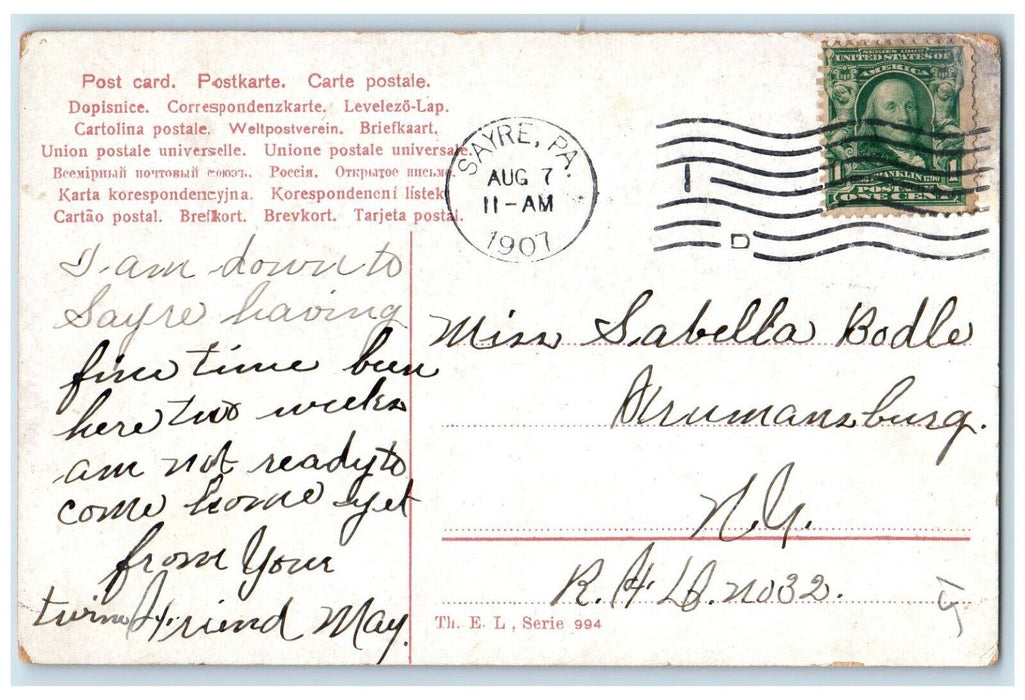 Post card. Postkarte. Carte postale.
Dopisnice. Correspondenzkarte. Levelező-Lap.
Cartolina postale. Weltpostverein. Briefkaart.
Union postale universelle. Unione postale universale.
Всемірный почтовый союзъ. Россія. Открытое письмо.
Karta korespondencyjna. Korespondenční lístek.
Cartão postal. Brefkort. Brevkort. Tarjeta postal.
SAYRE, PA.
AUG 7
11-AM
1907
1
D
SERIES 1902
UNITED STATES OF
AMERICA
1 FRANKLIN 1790 1
POSTAGE
ONE CENT
I am down to
Sayre having
fine time been
here two weeks
am not ready to
come home yet
from Your
twin Friend May.
Miss Isabella Bodle
Trumansburg.
N.Y.
R.F.D. no 32.
Th. E. L., Serie 994